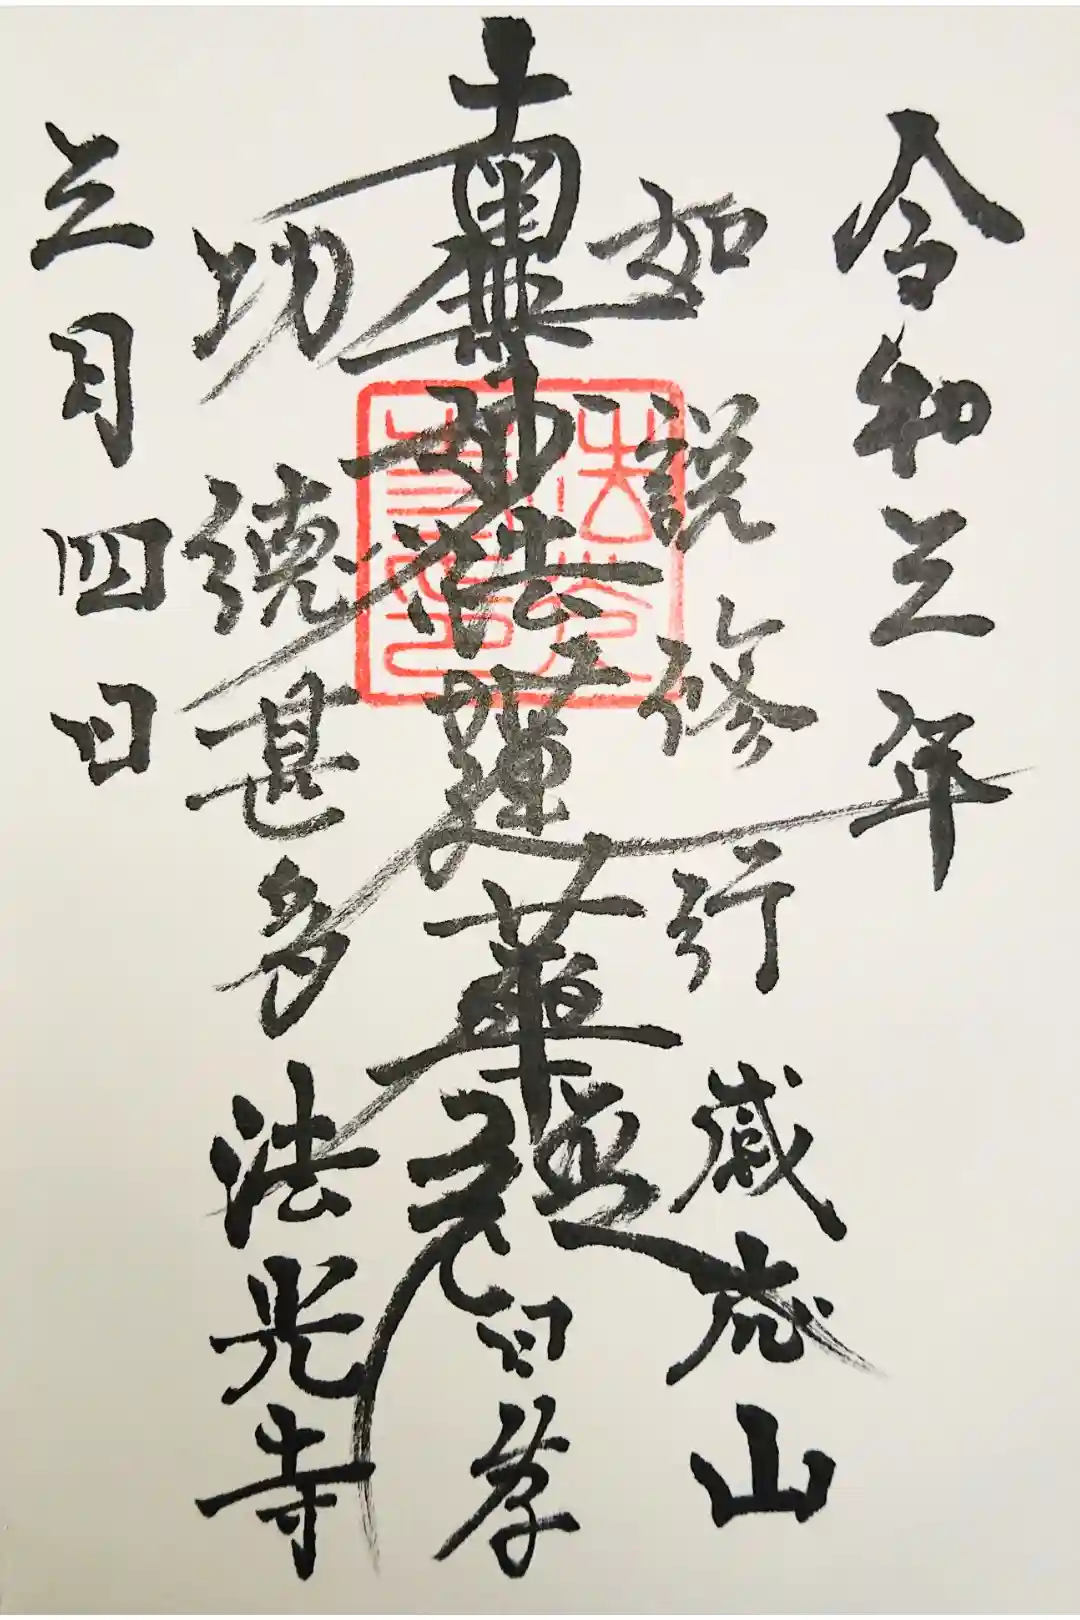 令和三年
如説修行
山
南無妙法蓮華經
日孝
功德甚多
法光寺
三月四日